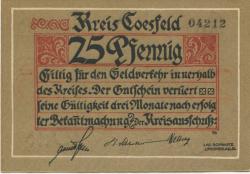 Kreis Coesfeld 04212
25 Pfennig
Gültig für den Geldverkehr innerhalb
des Kreises. Der Gutschein verliert
seine Gültigkeit drei Monate nach erfolg
ter Bekanntmachung Der Kreisausschuß: